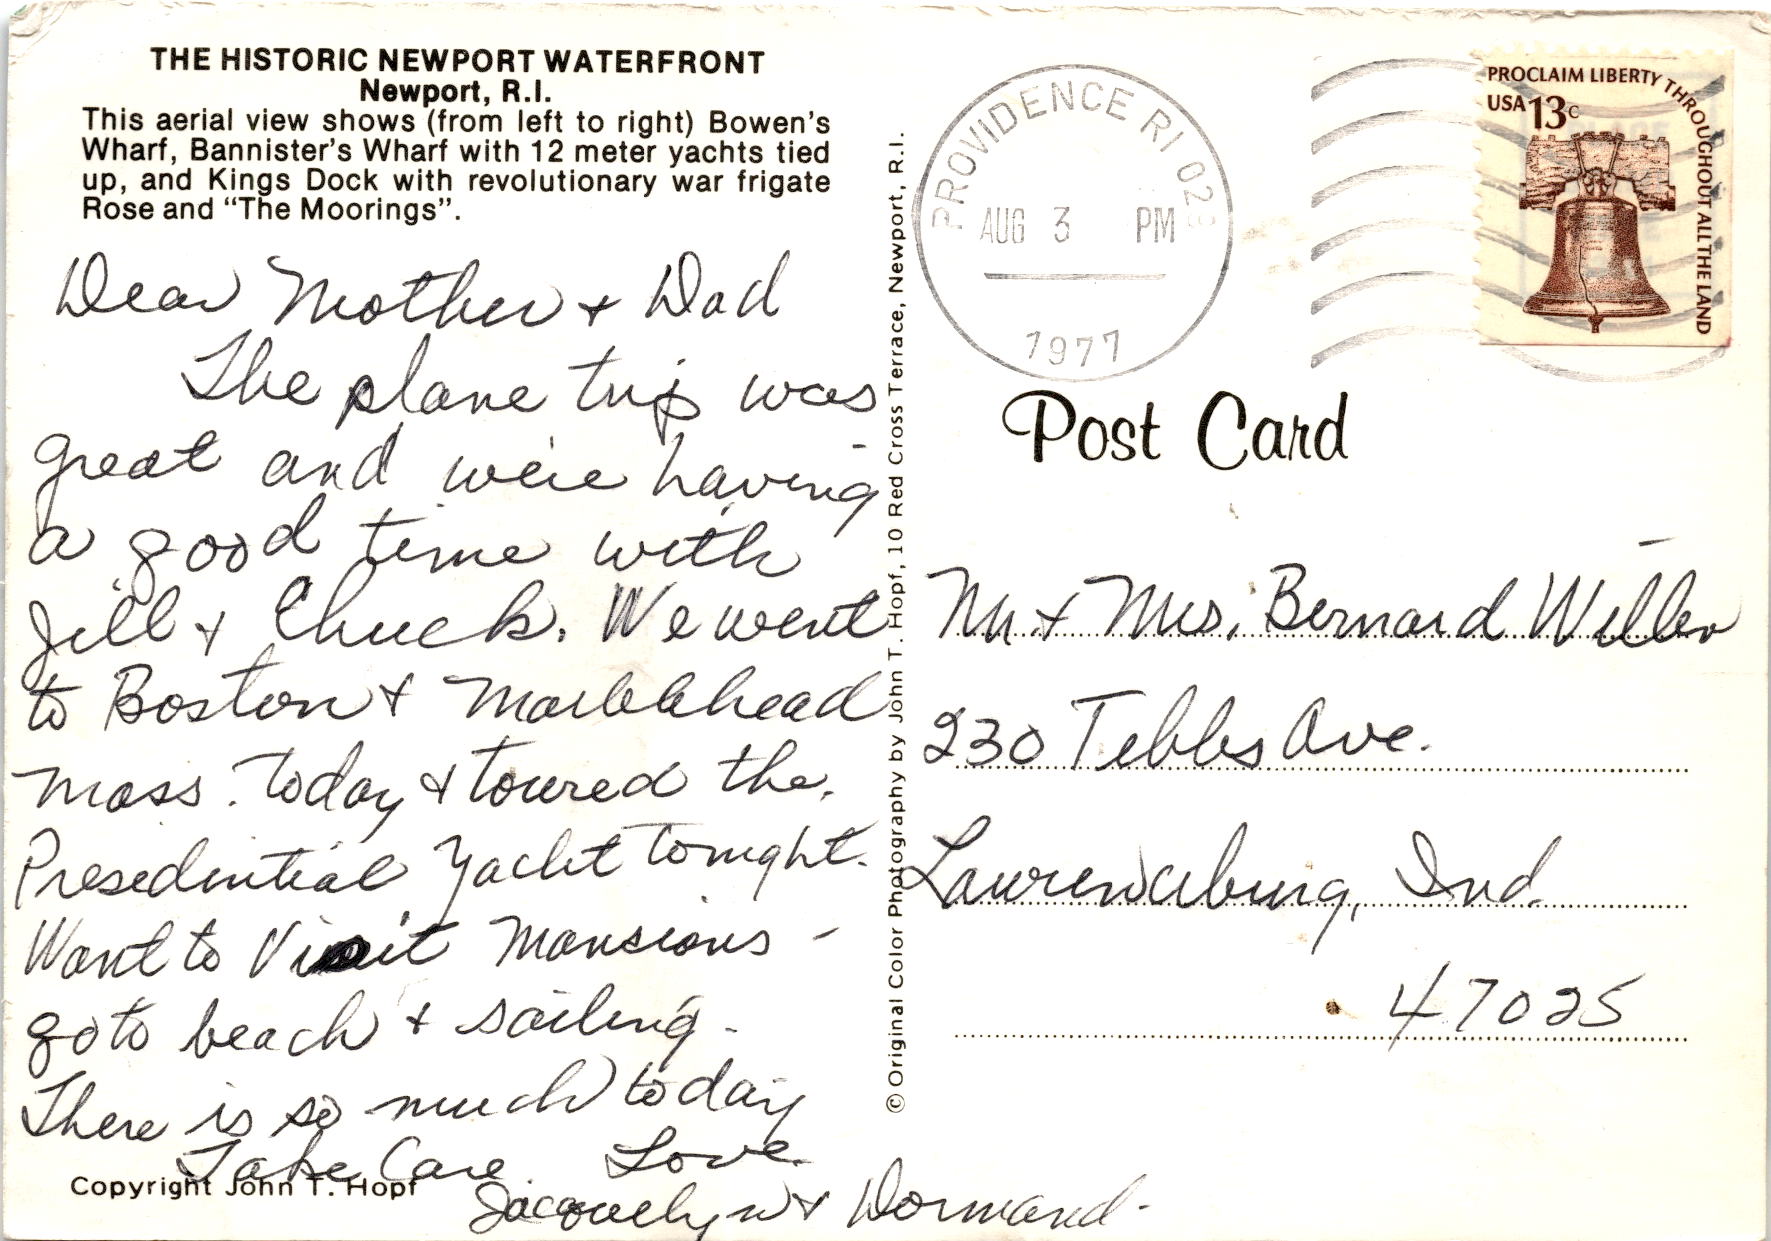 THE HISTORIC NEWPORT WATERFRONT
Newport, R.I.
This aerial view shows (from left to right) Bowen's
Wharf, Bannister's Wharf with 12 meter yachts tied
up, and Kings Dock with revolutionary war frigate
Rose and "The Moorings".
Dear Mother + Dad
The plane trip was
great and we're having
a good time with
Jill + Chuck. We went
to Boston + Marblehead
Mass. today + toured the
Presedential Yacht tonight.
Want to Visit Mansions -
go to beach + sailing.
There is so much today
Take Care Love
Jacquelyn + Dormand.
Copyright John T. Hopf
© Original Color Photography by John T. Hopf, 10 Red Cross Terrace, Newport, R.I.
PROVIDENCE RI 02
AUG 3 PM
1977
PROCLAIM LIBERTY THROUGHOUT ALL THE LAND
USA 13c
Post Card
Mr. + Mrs. Bernard
230 Tebbs Ave.
Lawrenceburg, Ind.
47025